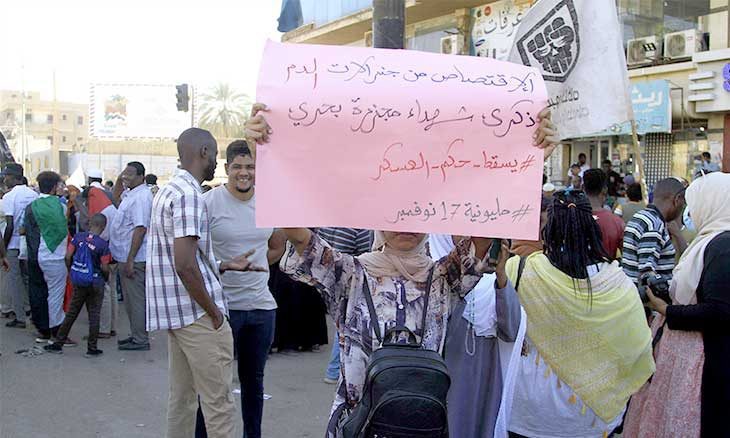 الاقتصاص من جنرالات الدم
ذكرى شهداء مجزرة بحري
#يسقط-حكم-العسكر
#مليونية 17 نوفمبر
عرفات